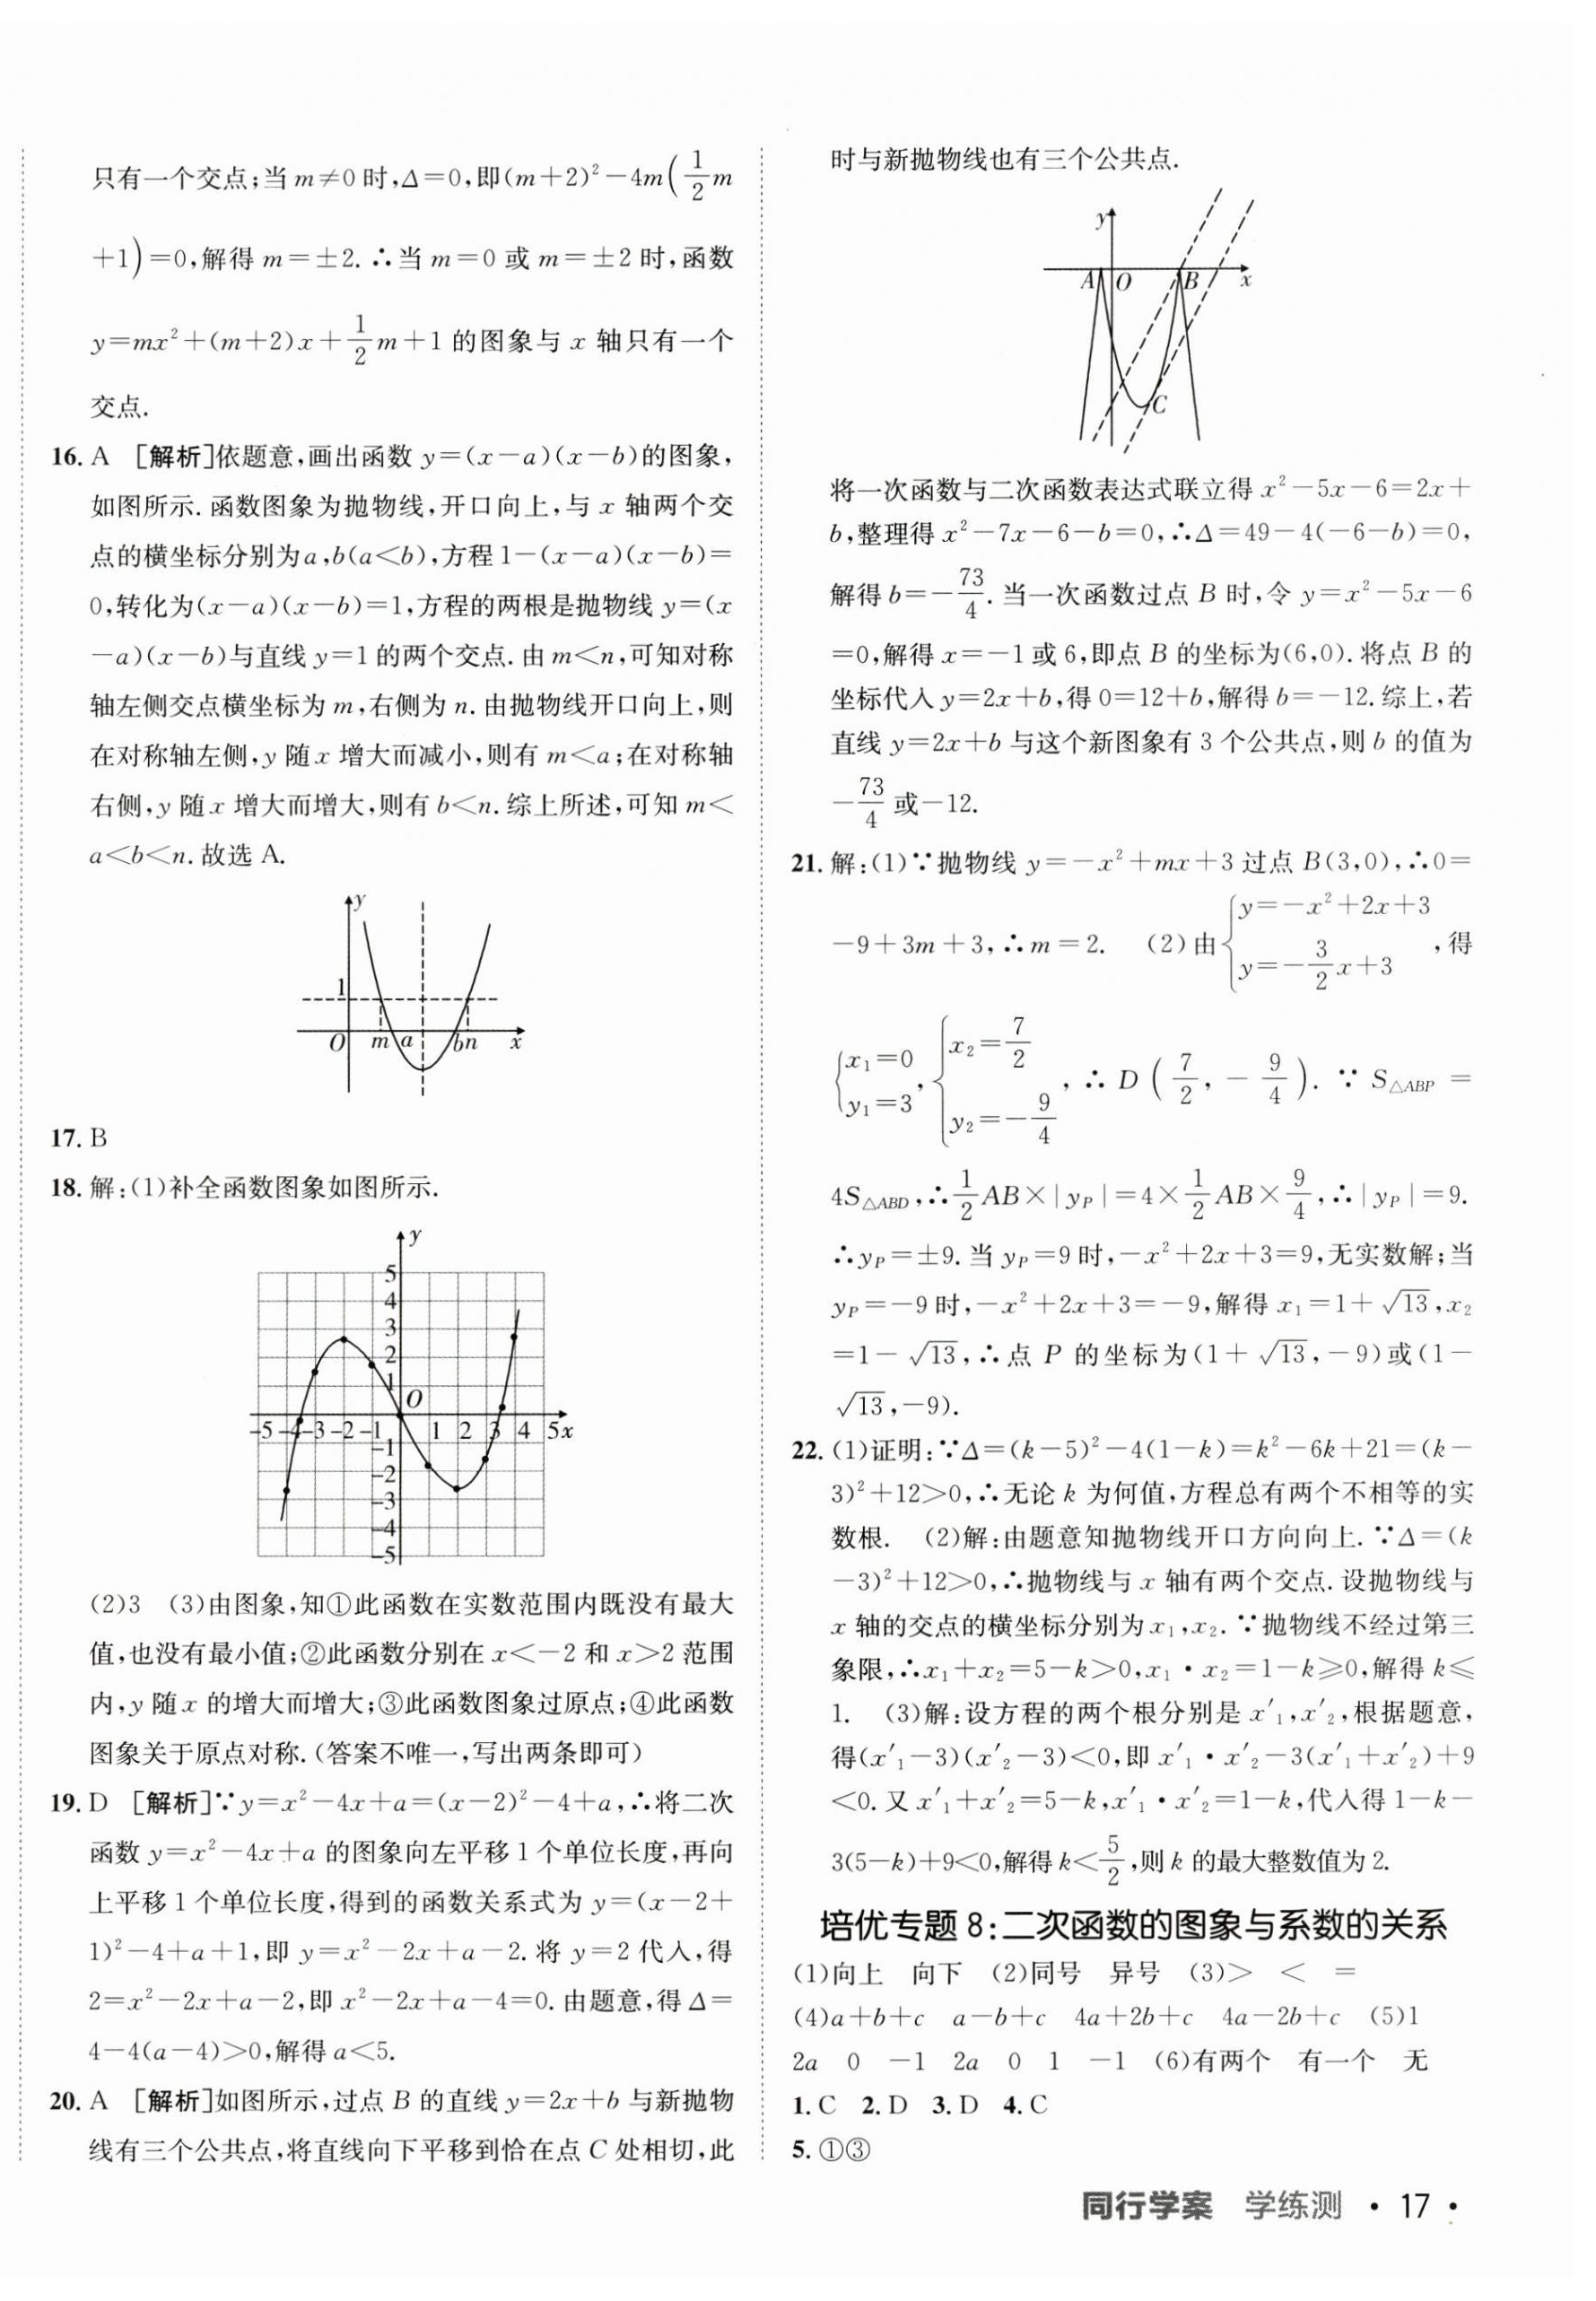 只有一个交点;当 m≠0 时,Δ=0,即(m+2)²-4m(1/2 m
+1)=0,解得 m=±2.∴当 m=0 或 m=±2 时,函数
y=mx²+(m+2)x+1/2 m+1 的图象与 x 轴只有一个
交点.
16. A [解析]依题意,画出函数 y=(x-a)(x-b)的图象,
如图所示.函数图象为抛物线,开口向上,与 x 轴两个交
点的横坐标分别为a,b(a<b),方程 1-(x-a)(x-b)=
0,转化为(x-a)(x-b)=1,方程的两根是抛物线 y=(x
-a)(x-b)与直线 y=1 的两个交点.由 m<n,可知对称
轴左侧交点横坐标为 m,右侧为 n.由抛物线开口向上,则
在对称轴左侧,y 随 x 增大而减小,则有 m<a;在对称轴
右侧,y 随 x 增大而增大,则有 b<n.综上所述,可知 m<
a<b<n.故选 A.
y
1
O m a bn x
17. B
18. 解:(1)补全函数图象如图所示.
y
5
4
3
2
1
O
-5 -4 -3 -2 -1 1 2 3 4 5x
-1
-2
-3
-4
-5
(2)3 (3)由图象,知①此函数在实数范围内既没有最大
值,也没有最小值;②此函数分别在 x<-2 和 x>2 范围
内,y 随 x 的增大而增大;③此函数图象过原点;④此函数
图象关于原点对称.(答案不唯一,写出两条即可)
19. D [解析]∵y=x²-4x+a=(x-2)²-4+a,∴将二次
函数 y=x²-4x+a 的图象向左平移 1 个单位长度,再向
上平移 1 个单位长度,得到的函数关系式为 y=(x-2+
1)²-4+a+1,即 y=x²-2x+a-2.将 y=2 代入,得
2=x²-2x+a-2,即 x²-2x+a-4=0.由题意,得 Δ=
4-4(a-4)>0,解得 a<5.
20. A [解析]如图所示,过点 B 的直线 y=2x+b 与新抛物
线有三个公共点,将直线向下平移到恰在点 C 处相切,此
时与新抛物线也有三个公共点.
y
A O B x
C
将一次函数与二次函数表达式联立得 x²-5x-6=2x+
b,整理得 x²-7x-6-b=0,∴Δ=49-4(-6-b)=0,
解得 b=-73/4.当一次函数过点 B 时,令 y=x²-5x-6
=0,解得 x=-1 或 6,即点 B 的坐标为(6,0).将点 B 的
坐标代入 y=2x+b,得 0=12+b,解得 b=-12.综上,若
直线 y=2x+b 与这个新图象有 3 个公共点,则 b 的值为
-73/4 或-12.
21. 解:(1)∵抛物线 y=-x²+mx+3 过点 B(3,0),∴0=
-9+3m+3,∴m=2. (2)由{y=-x²+2x+3 y=-3/2 x+3,得
{x₁=0 y₁=3,{x₂=7/2 y₂=-9/4,∴D(7/2,-9/4).∵S△ABP=
4S△ABD,∴1/2 AB×|yP|=4×1/2 AB×9/4,∴|yP|=9.
∴yP=±9.当 yP=9 时,-x²+2x+3=9,无实数解;当
yP=-9 时,-x²+2x+3=-9,解得 x₁=1+√13,x₂
=1-√13,∴点 P 的坐标为(1+√13,-9)或(1-
√13,-9).
22. (1)证明:∵Δ=(k-5)²-4(1-k)=k²-6k+21=(k-
3)²+12>0,∴无论 k 为何值,方程总有两个不相等的实
数根. (2)解:由题意知抛物线开口方向向上.∵Δ=(k
-3)²+12>0,∴抛物线与 x 轴有两个交点.设抛物线与
x 轴的交点的横坐标分别为 x₁,x₂.∵抛物线不经过第三
象限,∴x₁+x₂=5-k>0,x₁·x₂=1-k≥0,解得 k≤
1. (3)解:设方程的两个根分别是 x′₁,x′₂,根据题意,
得(x′₁-3)(x′₂-3)<0,即 x′₁·x′₂-3(x′₁+x′₂)+9
<0.又 x′₁+x′₂=5-k,x′₁·x′₂=1-k,代入得 1-k-
3(5-k)+9<0,解得 k<5/2,则 k 的最大整数值为 2.
培优专题 8:二次函数的图象与系数的关系
(1)向上 向下 (2)同号 异号 (3)> < =
(4)a+b+c a-b+c 4a+2b+c 4a-2b+c (5)1
2a 0 -1 2a 0 1 -1 (6)有两个 有一个 无
1. C 2. D 3. D 4. C
5. ①③
同行学案 学练测 · 17 ·